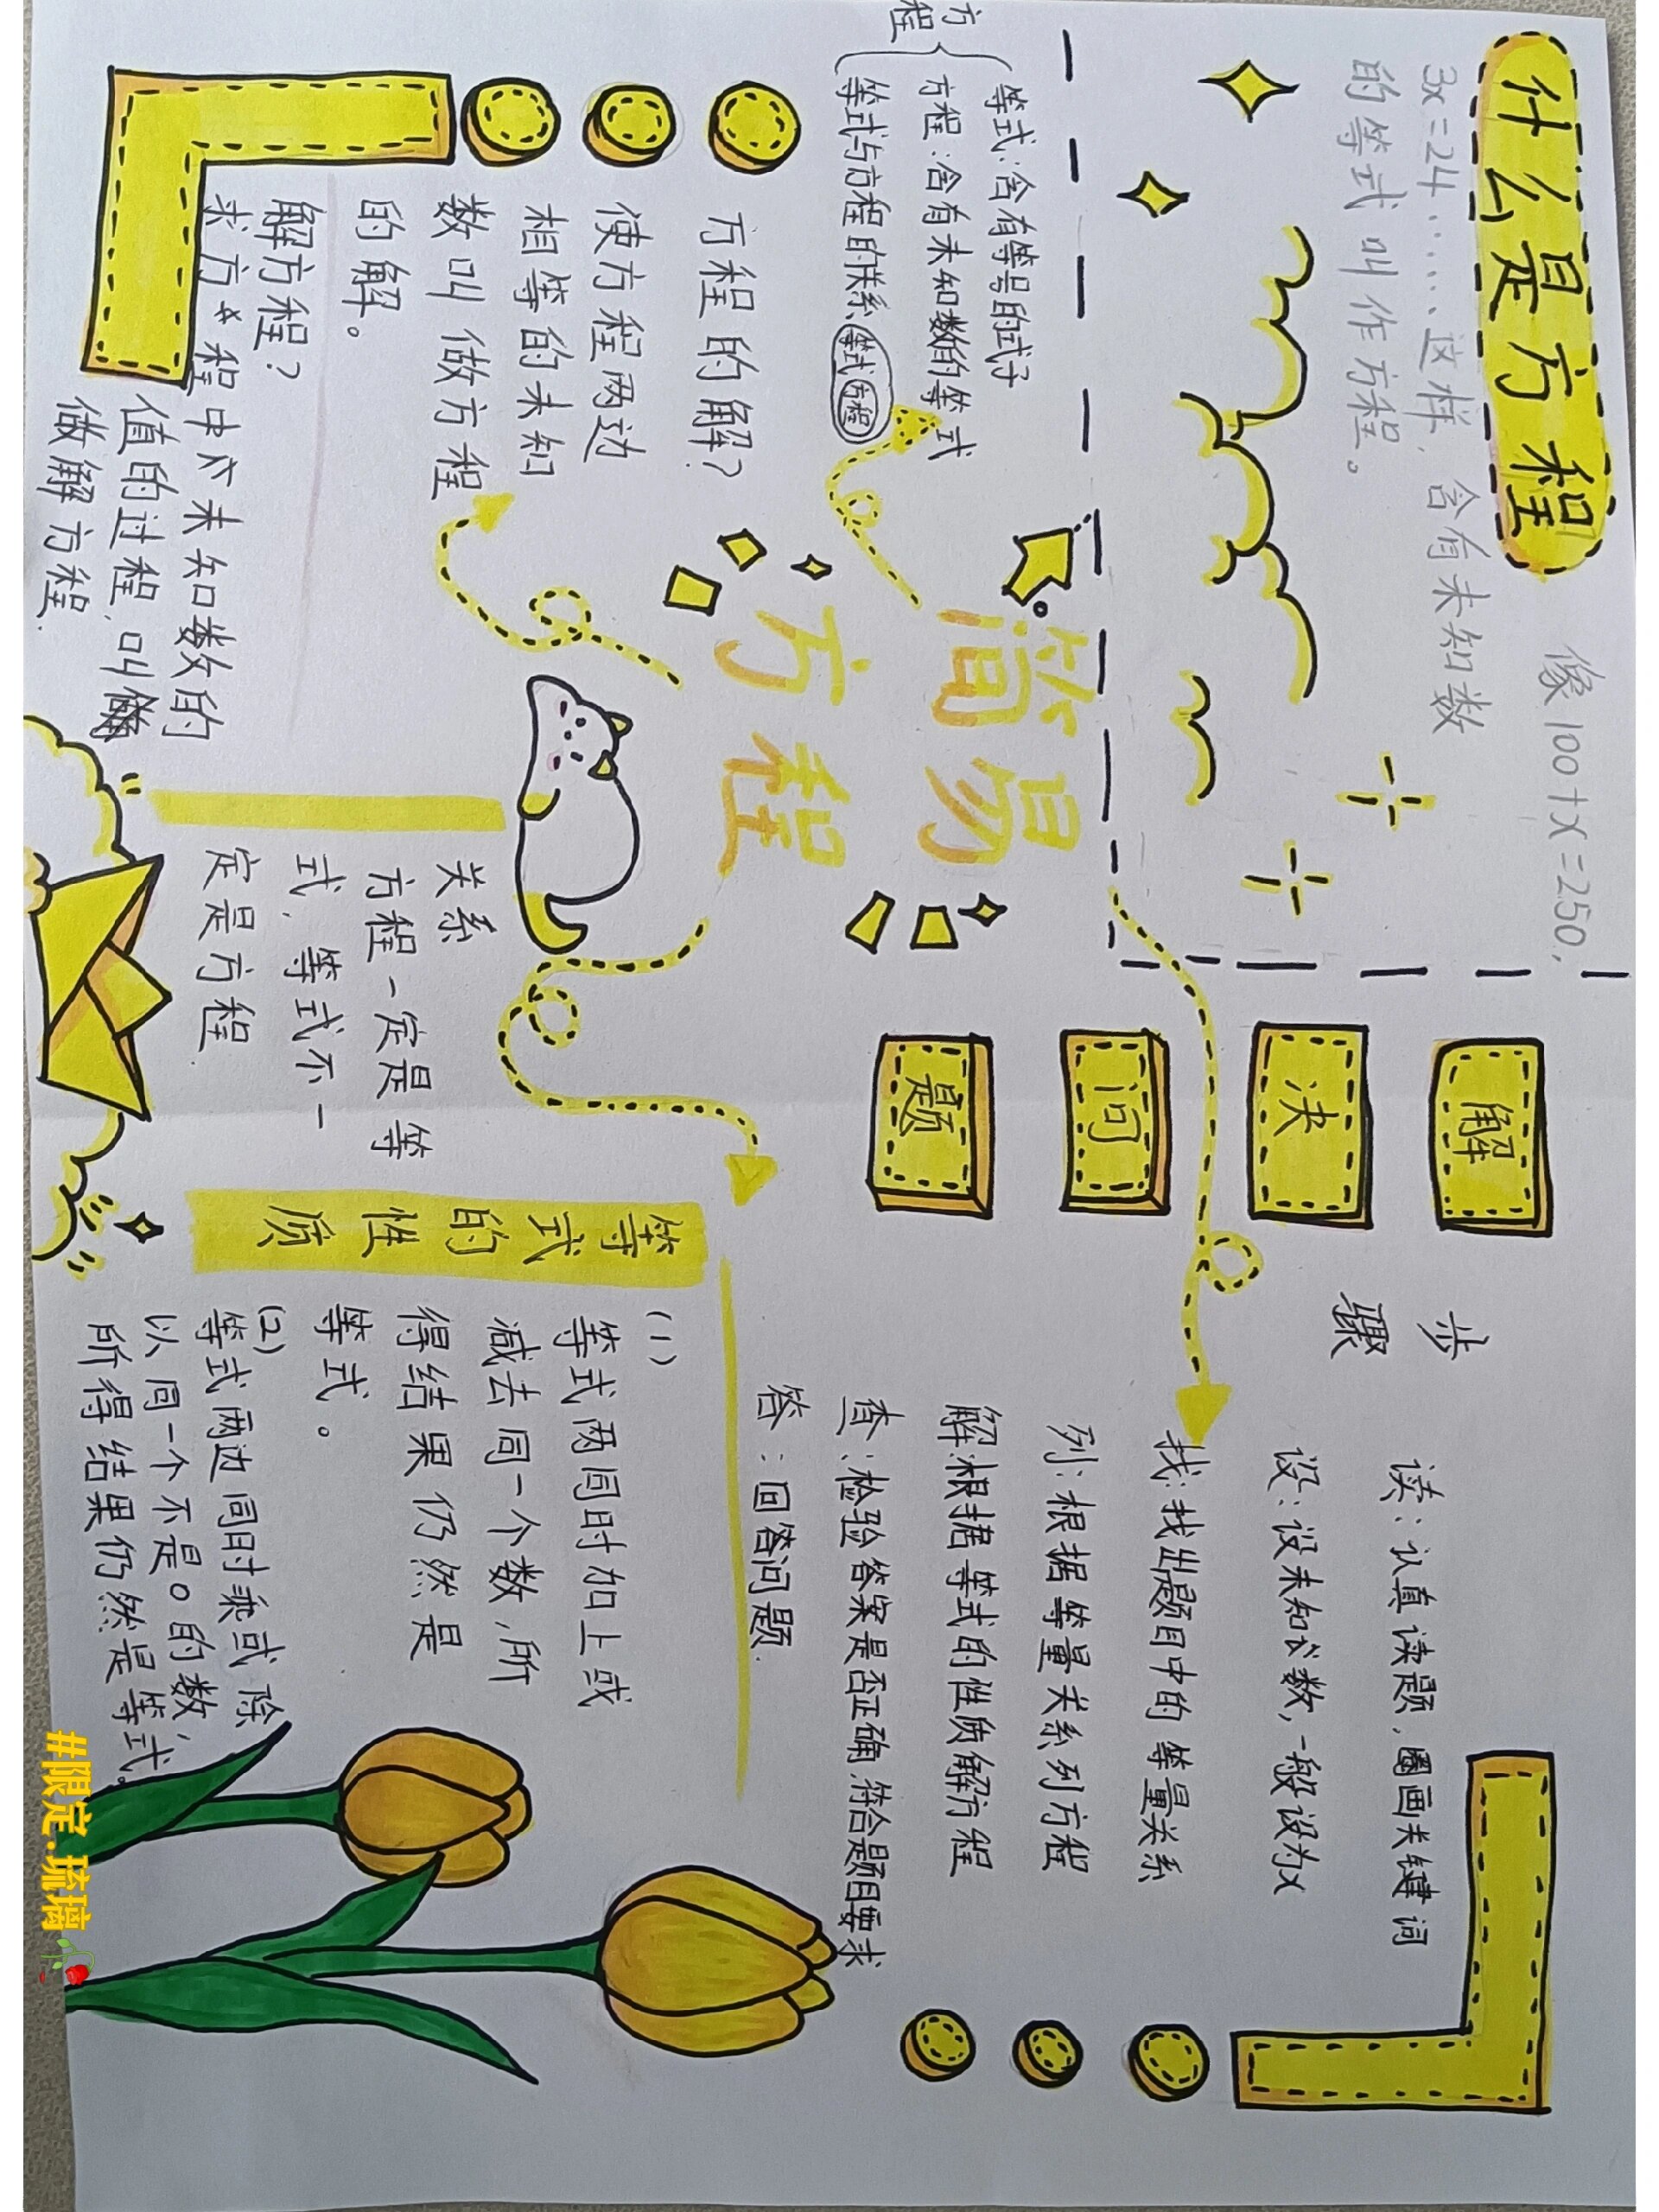 什么是方程
像100+x=250,
3x=24……这样，含有未知数
的等式叫作方程。
方程
等式：含有等号的式子
方程：含有未知数的等式
等式与方程的关系 等式 方程
简易
方程
方程的解？
使方程两边
相等的未知
数叫做方程
的解。
解方程？
求方程中未知数的
值的过程，叫
做解方程.
关系
方程一定是等
式，等式不一
定是方程.
解决问题
步骤
读：认真读题，圈画关键词
设：设未知数，一般设为x
找：找出题目中的等量关系
列：根据等量关系列方程
解：根据等式的性质解方程
查：检验答案是否正确，符合题目要求
答：回答问题.
等式的性质
(1)
等式两同时加上或
减去同一个数，所
得结果仍然是
等式。
(2)
等式两边同时乘或除
以同一个不是0的数，
所得结果仍然是等式。
#限定.琉璃